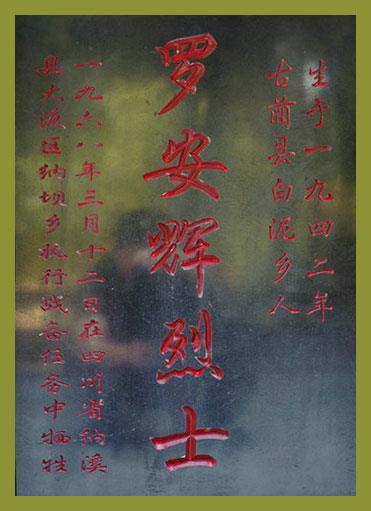 生于一九四二年
古蔺县白泥乡人
罗安辉烈士
一九六八年三月十二日在四川省纳溪
县大渡区纳坝乡执行战备任务中牺牲